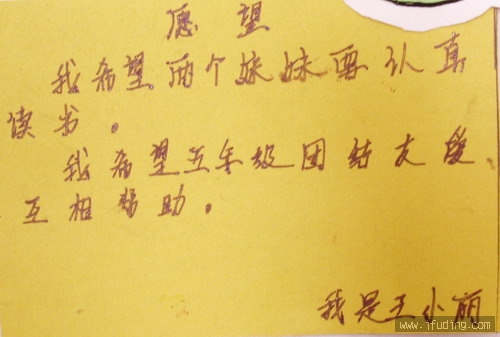 愿望
我希望两个妹妹要认真
读书。
我希望五年级团结友爱
互相帮助。
我是王小丽
www.ifuding.com